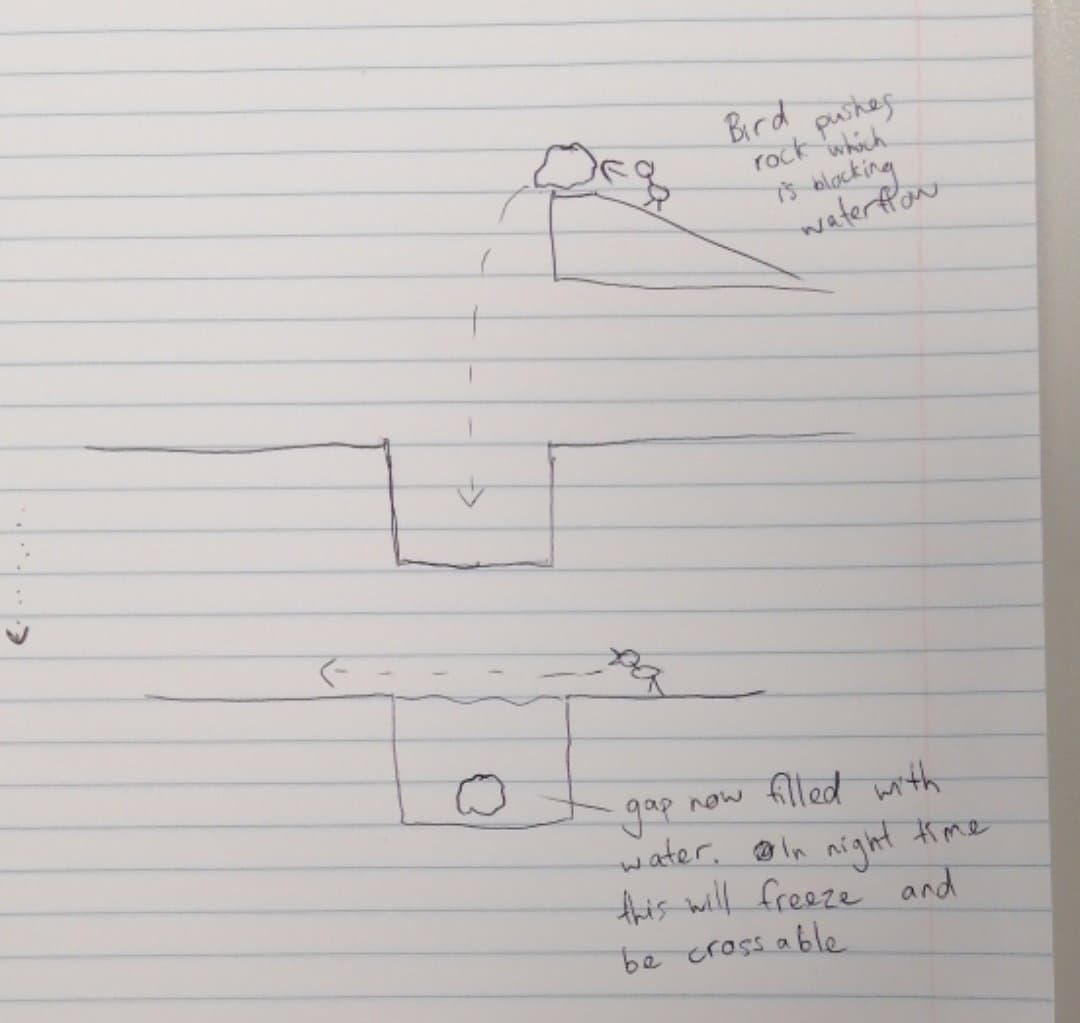 Bird pushes
rock which
is blocking
waterflow
gap now filled with
water. In night time
this will freeze and
be crossable